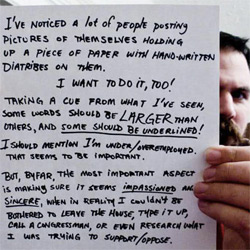 I'VE NOTICED A LOT OF PEOPLE POSTING
PICTURES OF THEMSELVES HOLDING
UP A PIECE OF PAPER WITH HAND-WRITTEN
DIATRIBES ON THEM.
I WANT TO DO IT, TOO!
TAKING A CUE FROM WHAT I'VE SEEN,
SOME WORDS SHOULD BE LARGER THAN
OTHERS, AND SOME SHOULD BE UNDERLINED!
I SHOULD MENTION I'M UNDER/OVEREMPLOYED.
THAT SEEMS TO BE IMPORTANT.
BUT, BY FAR, THE MOST IMPORTANT ASPECT
IS MAKING SURE IT SEEMS IMPASSIONED AND
SINCERE, WHEN IN REALITY I COULDN'T BE
BOTHERED TO LEAVE THE HOUSE, TYPE IT UP,
CALL A CONGRESSMAN, OR EVEN RESEARCH WHAT
I WAS TRYING TO SUPPORT/OPPOSE.